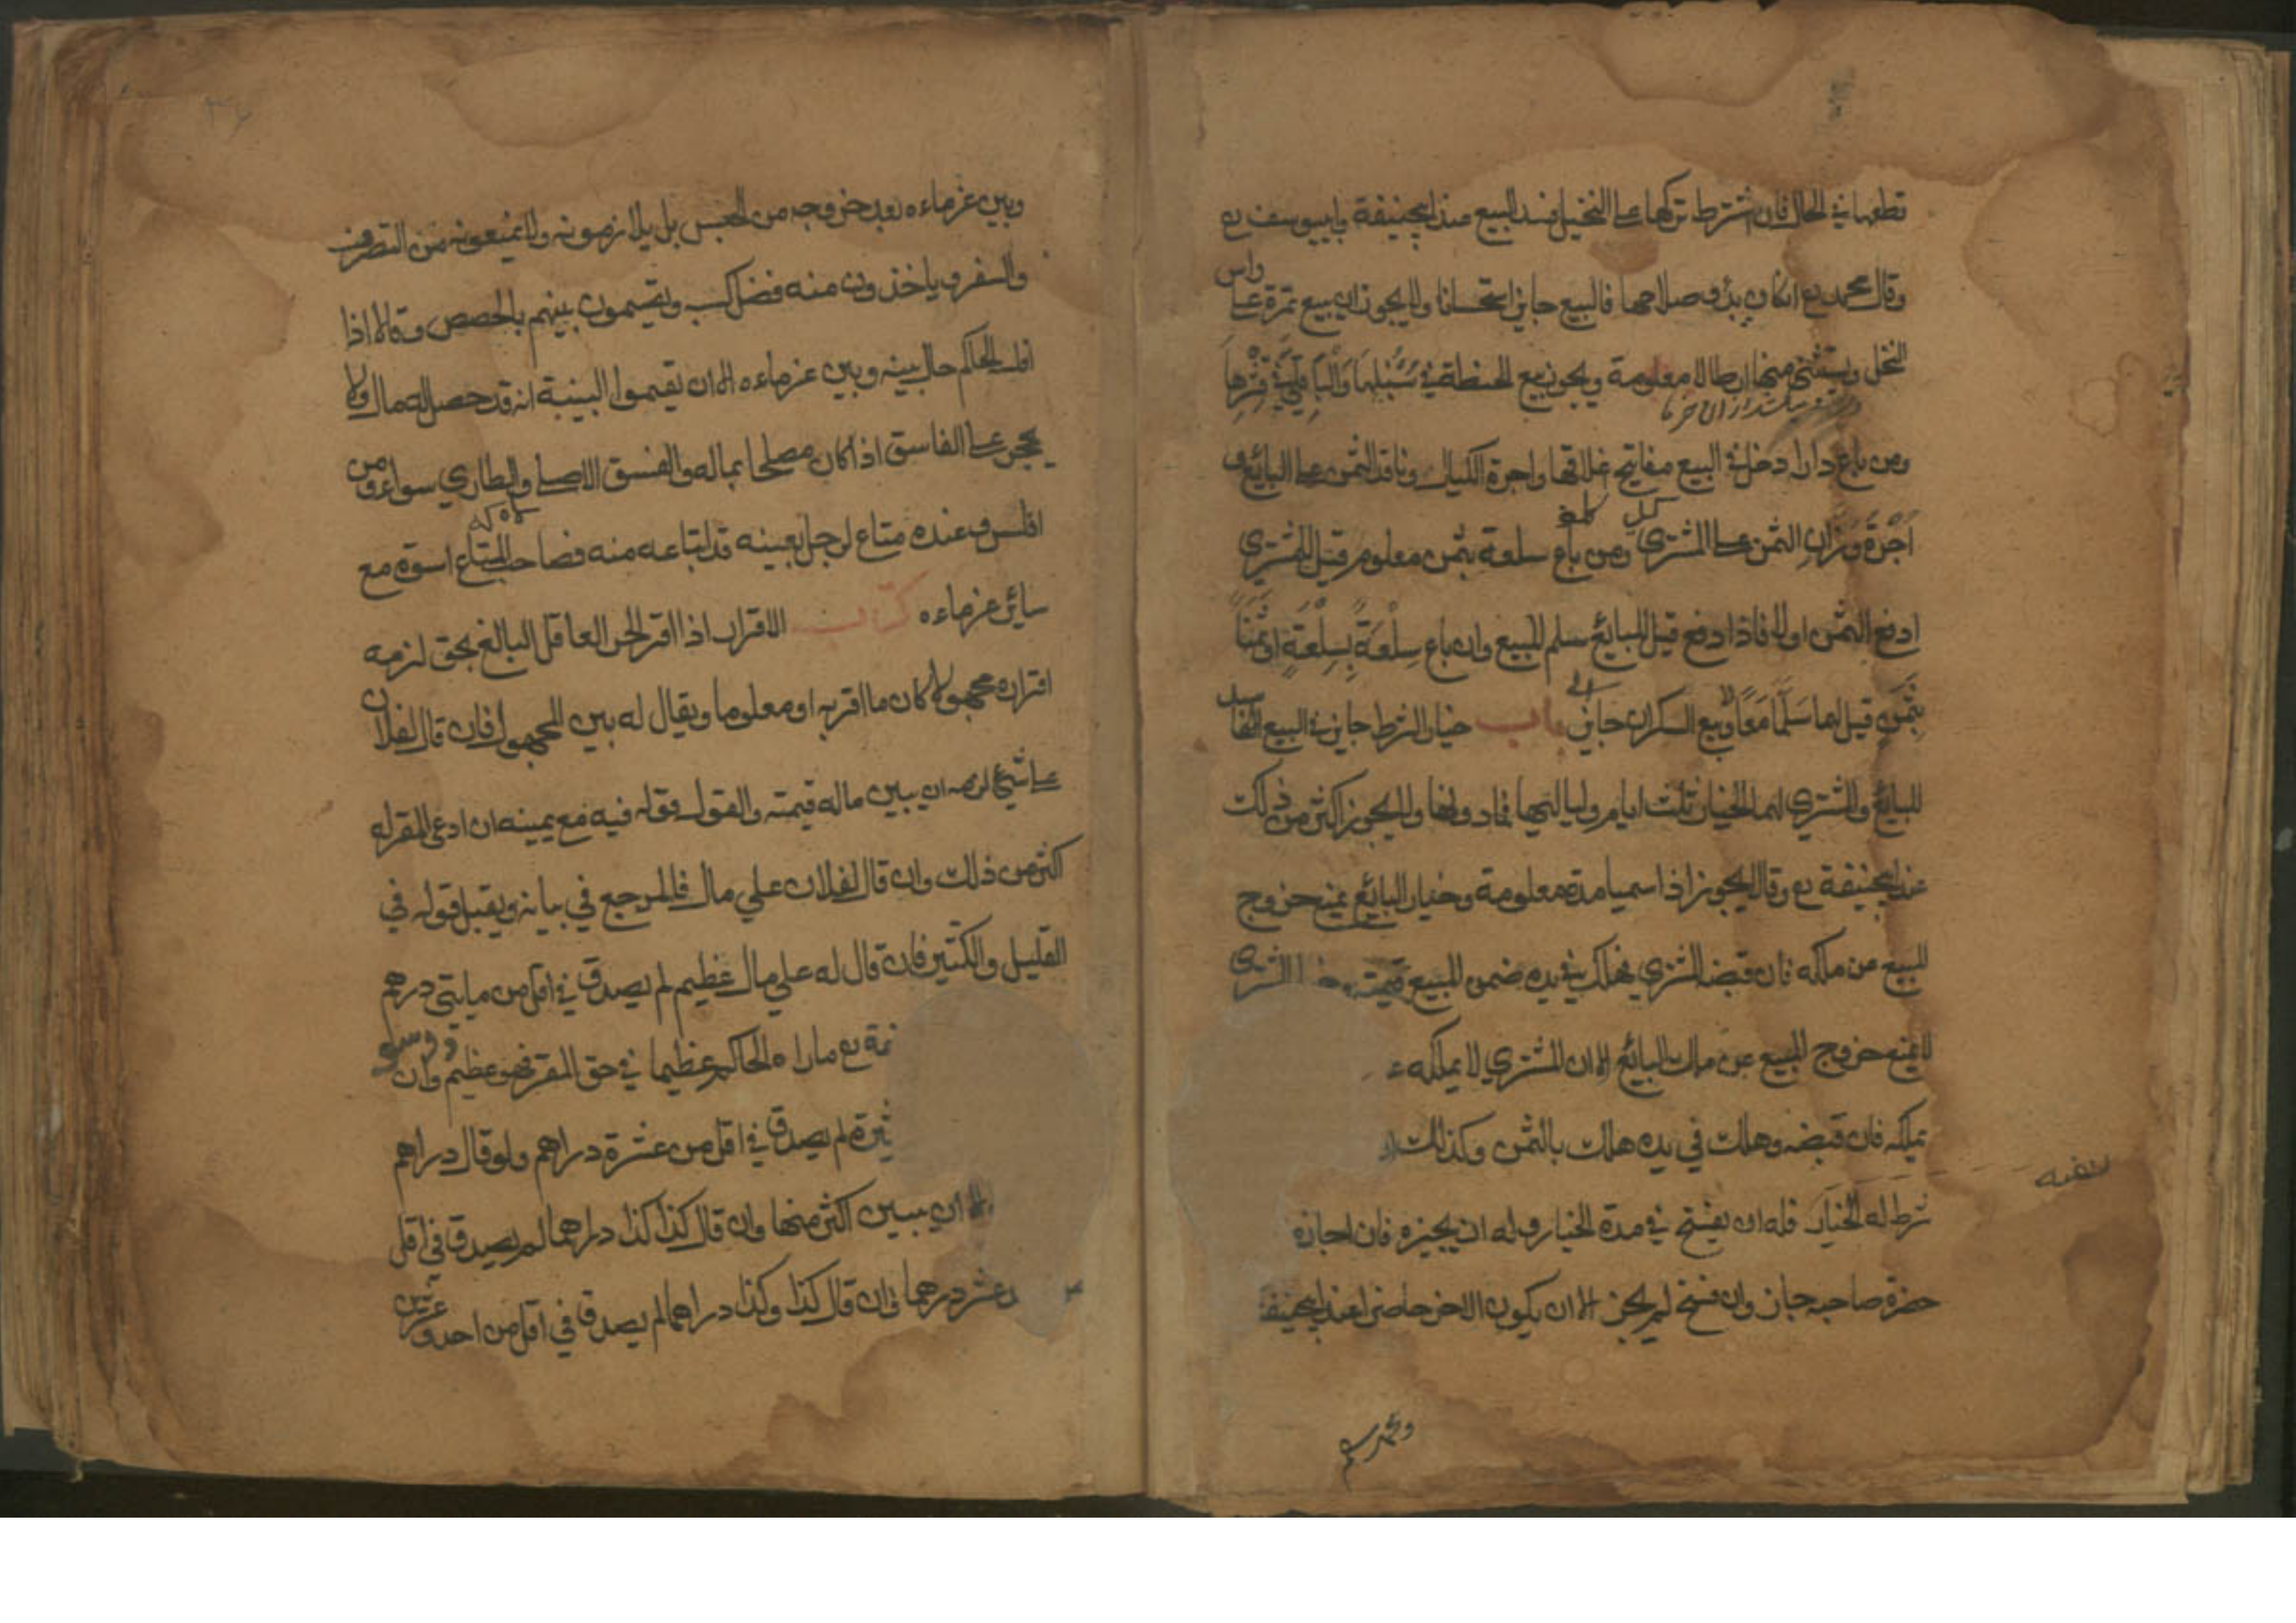 قطعها في الحال فان اشترط تركها على النخيل فسد البيع عند ابيحنيفة وابيوسف رح
وقال محمد رح ان كان بدو صلاحها فالبيع جايز استحسانا ولا يجوز ان يبيع ثمرة على راس
النخل ويستثني منها ارطالا معلومة ويجوز بيع الحنطة في سُنْبُلِهَا وَالْبَاقِلَّي في قِشْرِهَا
ومن باع دارا دخل في البيع مفاتيح غلاقها واجرة الكيال وناقد الثمن على البائع و
اُجْرَةُ وَزَّانِ الثمن على المشتري ومن باع سلعة بثمن معلوم قيل للمشتري
ادفع الثمن اولا فاذا دفع قيل للبائع سلم المبيع وان باع سِلْعَةً بِسِلْعَةٍ اوثَمَنًا
بِثَمَنٍ قيل لهما سَلِّمَا مَعًا وبيع السكران جايز باب خيار الشرط جايز في البيع
للبائع والمشتري لهما الخيار ثلث ايام ولياليها فما دونها ولا يجوز اكثر من ذلك
عند ابيحنيفة رح وقالا يجوز اذا سميا مدة معلومة وخيار البائع يمنع خروج
المبيع من ملكه فان قبضه المشتري فهلك في يده ضمن المبيع قيمته وخيار المشتري
لا يمنع خروج المبيع عن ملك البائع الا ان المشتري لا يملكه ع
يملكه فان قبضه وهلك في يده هلك بالثمن وكذلك
شرط له الخيار فله ان يفسخ في مدة الخيار وله ان يجيزه فان اجازه
حضرة صاحبه جاز وان فسخ لم يجز الا ان يكون الاخر حاضرا عند ابيحنيفة
ومحمد
وبين غرماءه بعد خروجه من الحبس بل يلازمونه ولا يمنعونه من التصرف
والسفر وياخذون منه فضل كسبه ويقسمون بينهم بالحصص وقالا اذا
افلسه الحاكم حال بينه وبين غرماءه الا ان يقيموا البينة انه قد حصل له مال ولا
يحجر على الفاسق اذا كان مصلحا بماله والفسق الاصلي والطاري سواء ومن
افلس وعنده متاع لرجل بعينه قد ابتاعه منه فصاحب المتاع اسوة مع
سائر غرماءه كتاب الاقرار اذا اقر الحر العاقل البالغ بحق لزمه
اقراره مجهولا كان ما اقر به او معلوما ويقال له بين المجهول فان قال لفلان
على شيئ لزمه ان يبين ماله قيمته والقول قوله فيه مع يمينه ان ادعى المقر له
اكثر من ذلك وان قال لفلان علي مال فالمرجع في بيانه ويقبل قوله في
القليل والكثير فان قال له علي مال عظيم لم يصدق في اقل من مايتي درهم
رح ما راه الحاكم عظيما في حق المقر فهو عظيم وان
لم يصدق في اقل من عشرة دراهم ولو قال دراهم
الا ان يبين اكثر منها وان قال كذا كذا درهما لم يصدق في اقل
عشر درهما وان قال كذا وكذا درهما لم يصدق في اقل من احد وعشرين